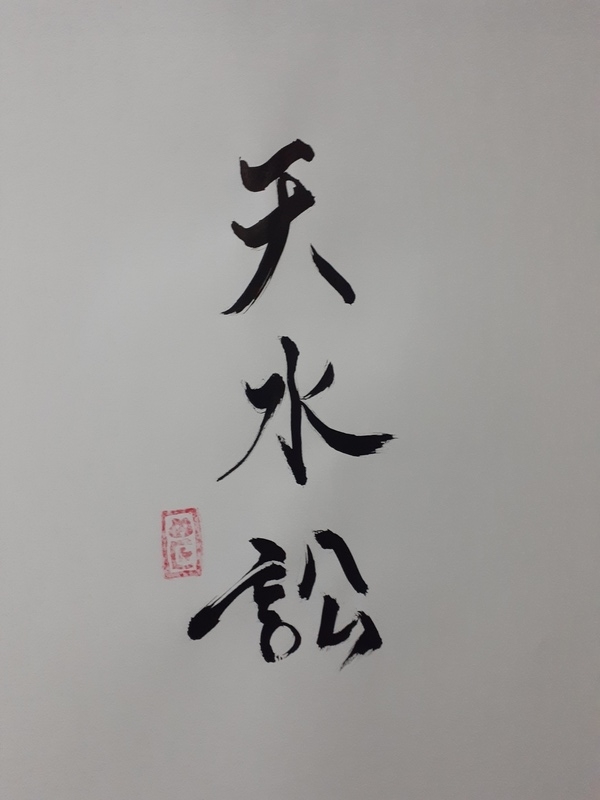 天水訟